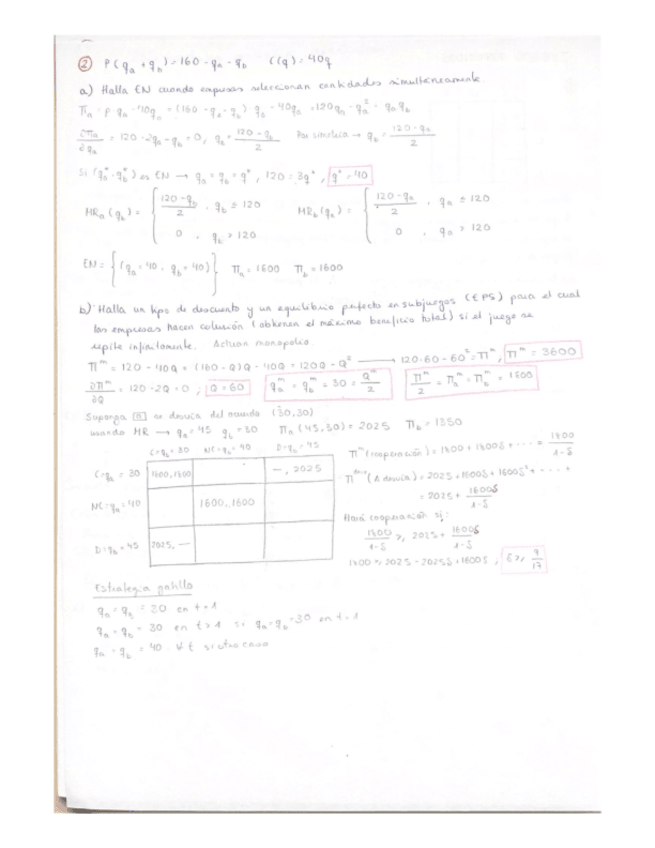 ② P(qa + qb) = 160 - qa - qb   C(q) = 40q
a) Halla EN cuando empresas seleccionan cantidades simultáneamente.
Πa = p qa - 40qa = (160 - qa - qb) qa - 40qa = 120qa - qa² - qa qb
∂Πa/∂qa = 120 - 2qa - qb = 0, qa = (120 - qb)/2   Por simetría → qb = (120 - qa)/2
Si (qa*, qb*) es EN → qa = qb = q*, 120 = 3q*, q* = 40
MRa(qb) = { (120 - qb)/2, qb ≤ 120   MRb(qa) = { (120 - qa)/2, qa ≤ 120
0, qb > 120   0, qa > 120
EN = { (qa = 40, qb = 40) }   Πa = 1600   Πb = 1600
b) Halla un tipo de descuento y un equilibrio perfecto en subjuegos (EPS) para el cual
las empresas hacen colusión (obtienen el máximo beneficio total) si el juego se
repite infinitamente. Actúan monopolio.
∂Πm/∂Q = 120 - 2Q = 0, Q = 60   qa^m = qb^m = 30 = Q^m/2
Suponga a se desvía del acuerdo (30,30)
usando MR → qa = 45 qb = 30   Πa(45,30) = 2025   Πb = 1350
C=qb=30 NC=qb=40 D=qb=45
C=qa=30   1800,1800   —, 2025
NC=qa=40   1600, 1600
D=qa=45   2025, —
Πm (cooperación) = 1800 + 1800δ + ··· = 1800/(1-δ)
= 2025 + 1600δ/(1-δ)
Hará cooperación si:
1800/(1-δ) ≥ 2025 + 1600δ/(1-δ)
1800 ≥ 2025 - 2025δ + 1600δ, δ ≥ 9/17
Estrategia gatillo
qa = qb = 30 en t=1
qa = qb = 30 en t>1 si qa=qb=30 en t-1
qa = qb = 40 ∀t si otro caso